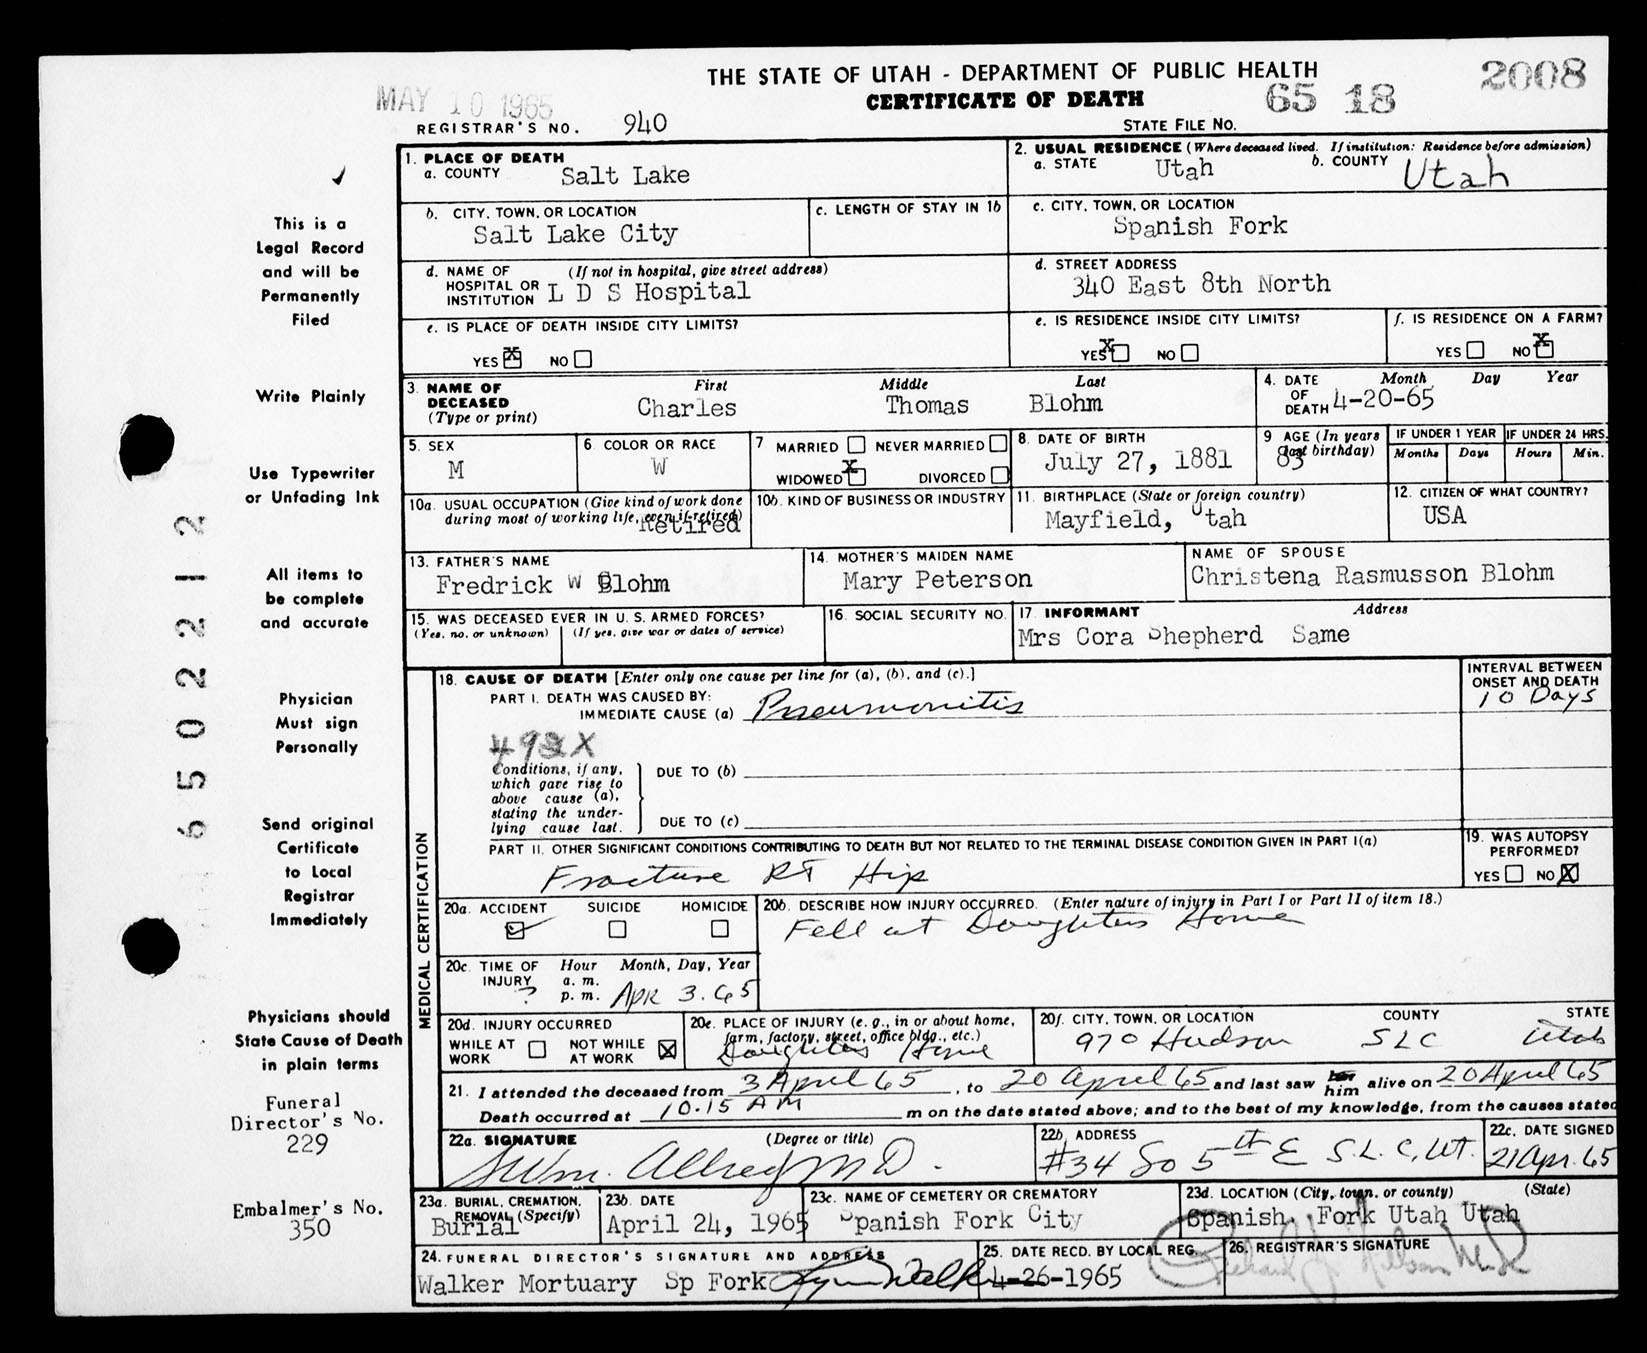 THE STATE OF UTAH - DEPARTMENT OF PUBLIC HEALTH
2008
MAY 10 1965
CERTIFICATE OF DEATH
65 18
REGISTRAR'S NO. 940
STATE FILE NO.
1. PLACE OF DEATH
a. COUNTY Salt Lake
2. USUAL RESIDENCE (Where deceased lived. If institution: Residence before admission)
a. STATE Utah b. COUNTY Utah
b. CITY, TOWN, OR LOCATION
Salt Lake City
c. LENGTH OF STAY IN 1b
c. CITY, TOWN, OR LOCATION
Spanish Fork
d. NAME OF HOSPITAL OR INSTITUTION (If not in hospital, give street address)
L D S Hospital
d. STREET ADDRESS
340 East 8th North
e. IS PLACE OF DEATH INSIDE CITY LIMITS?
YES X NO
e. IS RESIDENCE INSIDE CITY LIMITS?
YES X NO
f. IS RESIDENCE ON A FARM?
YES NO X
3. NAME OF DECEASED (Type or print)
First Middle Last
Charles Thomas Blohm
4. DATE OF DEATH Month Day Year
4-20-65
5. SEX
M
6. COLOR OR RACE
W
7. MARRIED NEVER MARRIED
WIDOWED X DIVORCED
8. DATE OF BIRTH
July 27, 1881
9 AGE (In years last birthday)
83
IF UNDER 1 YEAR
Months Days
IF UNDER 24 HRS.
Hours Min.
10a. USUAL OCCUPATION (Give kind of work done during most of working life, even if retired)
Retired
10b. KIND OF BUSINESS OR INDUSTRY
11. BIRTHPLACE (State or foreign country)
Mayfield, Utah
12. CITIZEN OF WHAT COUNTRY?
USA
13. FATHER'S NAME
Fredrick W Blohm
14. MOTHER'S MAIDEN NAME
Mary Peterson
NAME OF SPOUSE
Christena Rasmusson Blohm
15. WAS DECEASED EVER IN U. S. ARMED FORCES?
(Yes, no, or unknown) (If yes, give war or dates of service)
16. SOCIAL SECURITY NO.
17. INFORMANT Address
Mrs Cora Shepherd Same
MEDICAL CERTIFICATION
18. CAUSE OF DEATH [Enter only one cause per line for (a), (b), and (c).]
INTERVAL BETWEEN ONSET AND DEATH
PART I. DEATH WAS CAUSED BY:
IMMEDIATE CAUSE (a) Pneumonitis
10 Days
Conditions, if any, which gave rise to above cause (a), stating the underlying cause last.
DUE TO (b)
DUE TO (c)
PART II. OTHER SIGNIFICANT CONDITIONS CONTRIBUTING TO DEATH BUT NOT RELATED TO THE TERMINAL DISEASE CONDITION GIVEN IN PART I(a)
Fracture Rt Hip
19. WAS AUTOPSY PERFORMED?
YES NO X
20a. ACCIDENT SUICIDE HOMICIDE
20b. DESCRIBE HOW INJURY OCCURRED. (Enter nature of injury in Part I or Part II of item 18.)
Fell at Daughters Home
20c. TIME OF INJURY Hour Month, Day, Year
a. m.
? p. m. Apr 3. 65
20d. INJURY OCCURRED
WHILE AT WORK NOT WHILE AT WORK X
20e. PLACE OF INJURY (e. g., in or about home, farm, factory, street, office bldg., etc.)
Daughters Home
20f. CITY, TOWN, OR LOCATION COUNTY STATE
970 Hudson SLC Utah
21. I attended the deceased from 3 April 65, to 20 April 65 and last saw her him alive on 20 April 65
Death occurred at 10.15 AM m on the date stated above; and to the best of my knowledge, from the causes stated
22a. SIGNATURE (Degree or title)
Allred MD.
22b. ADDRESS
#34 So 5th E S.L.C, Ut.
22c. DATE SIGNED
21 Apr. 65
23a. BURIAL, CREMATION, REMOVAL (Specify)
Burial
23b. DATE
April 24, 1965
23c. NAME OF CEMETERY OR CREMATORY
Spanish Fork City
23d. LOCATION (City, town, or county) (State)
Spanish, Fork Utah Utah
24. FUNERAL DIRECTOR'S SIGNATURE AND ADDRESS
Walker Mortuary Sp Fork Walker
25. DATE RECD. BY LOCAL REG.
4-26-1965
26. REGISTRAR'S SIGNATURE
This is a
Legal Record
and will be
Permanently
Filed
Write Plainly
Use Typewriter
or Unfading Ink
All items to
be complete
and accurate
Physician
Must sign
Personally
Send original
Certificate
to Local
Registrar
Immediately
Physicians should
State Cause of Death
in plain terms
Funeral
Director's No.
229
Embalmer's No.
350
65022212